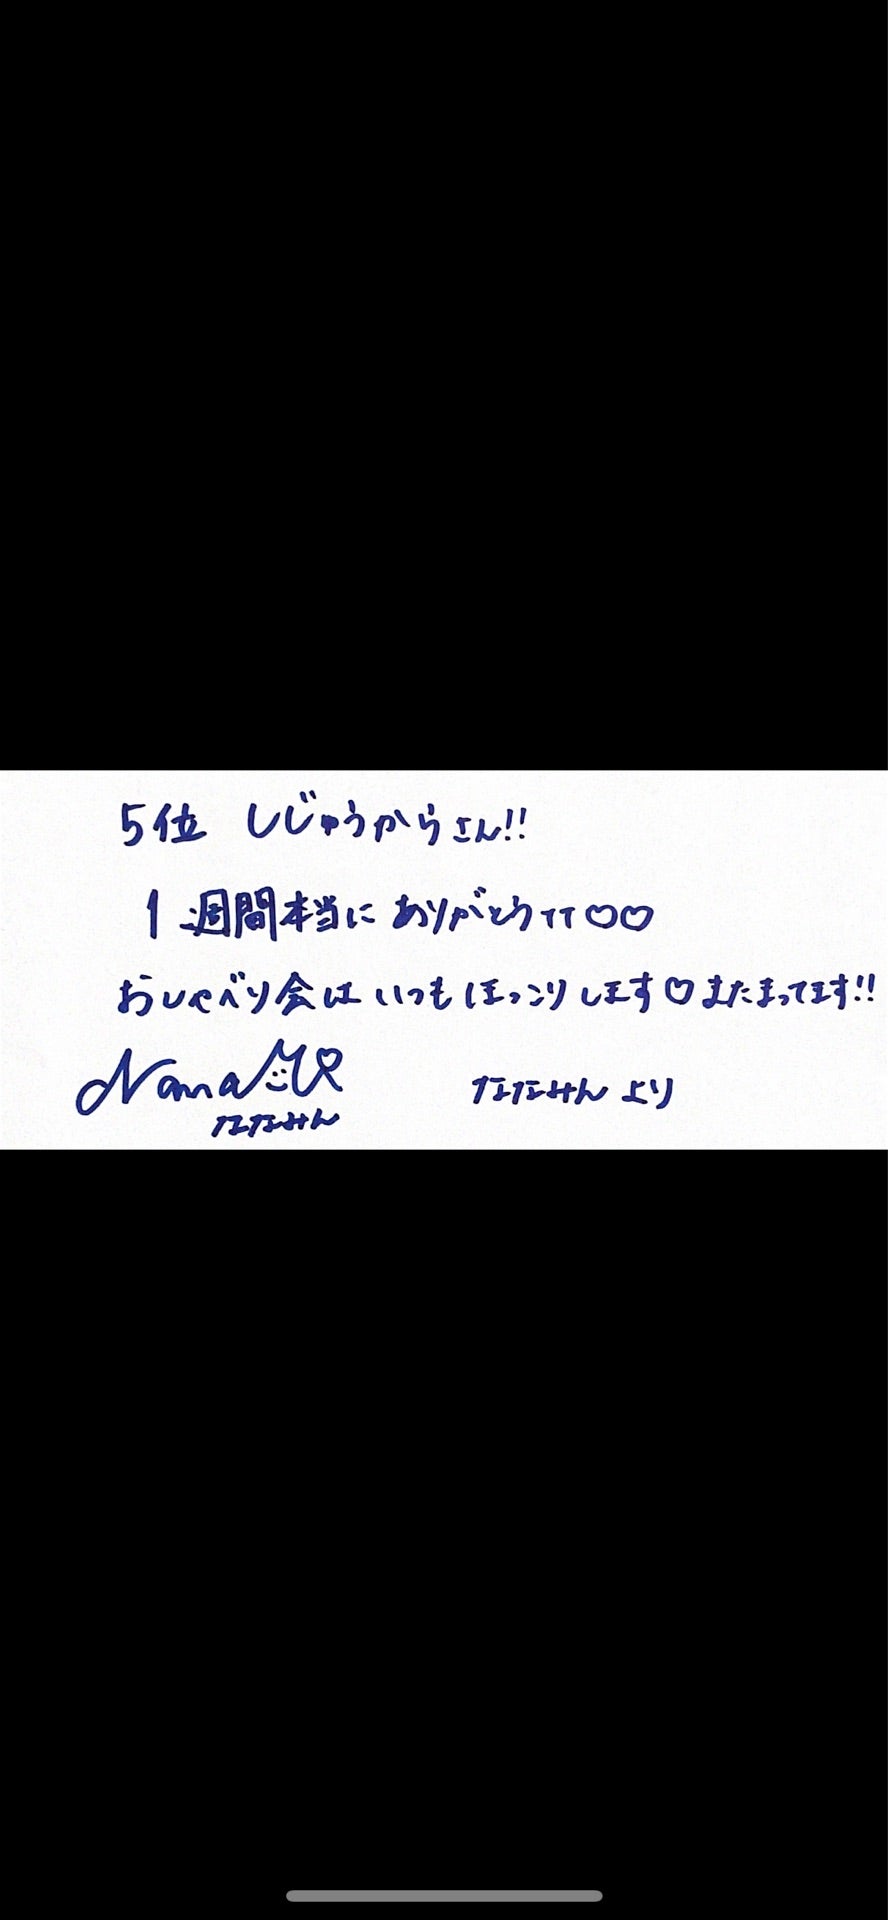 5位 しじゅうからさん!!
1週間本当にありがとうTT♡♡
おしゃべり会はいつもほっこりします♡またまってます!!
Nana
ななみん
ななみんより